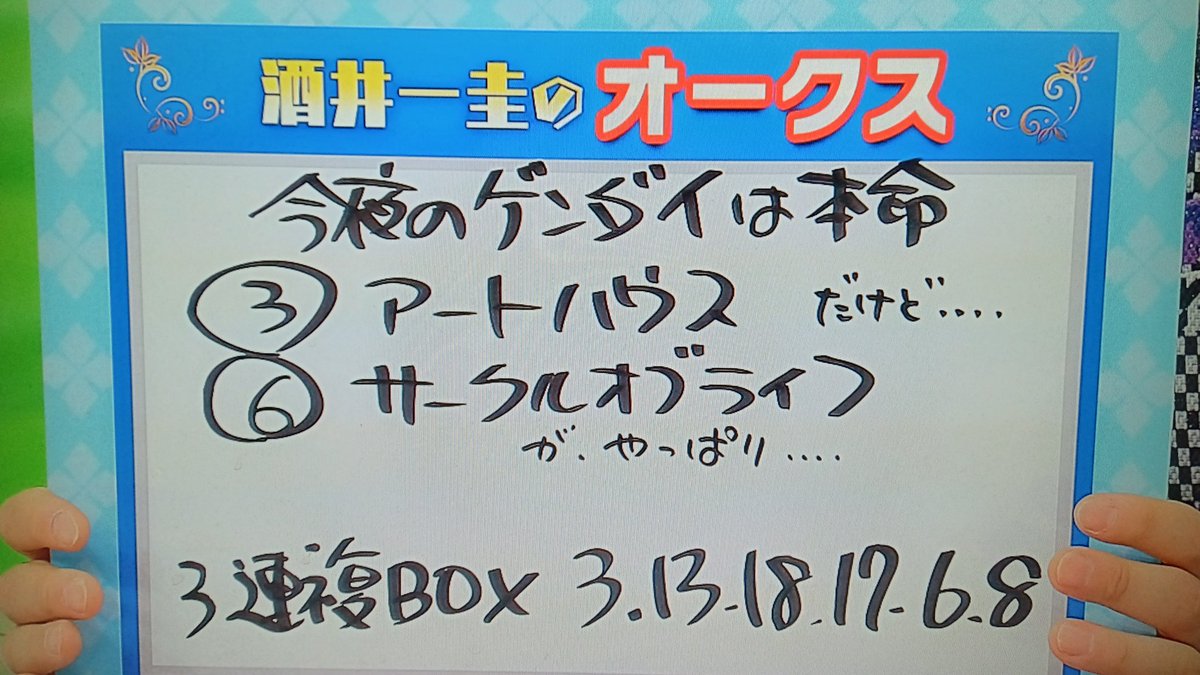 酒井一圭のオークス
今夜のゲンダイは本命
③ アートハウス だけど‥‥
⑥ サークルオブライフ
が、やっぱり‥‥
3連複BOX 3.13-18.17-6.8